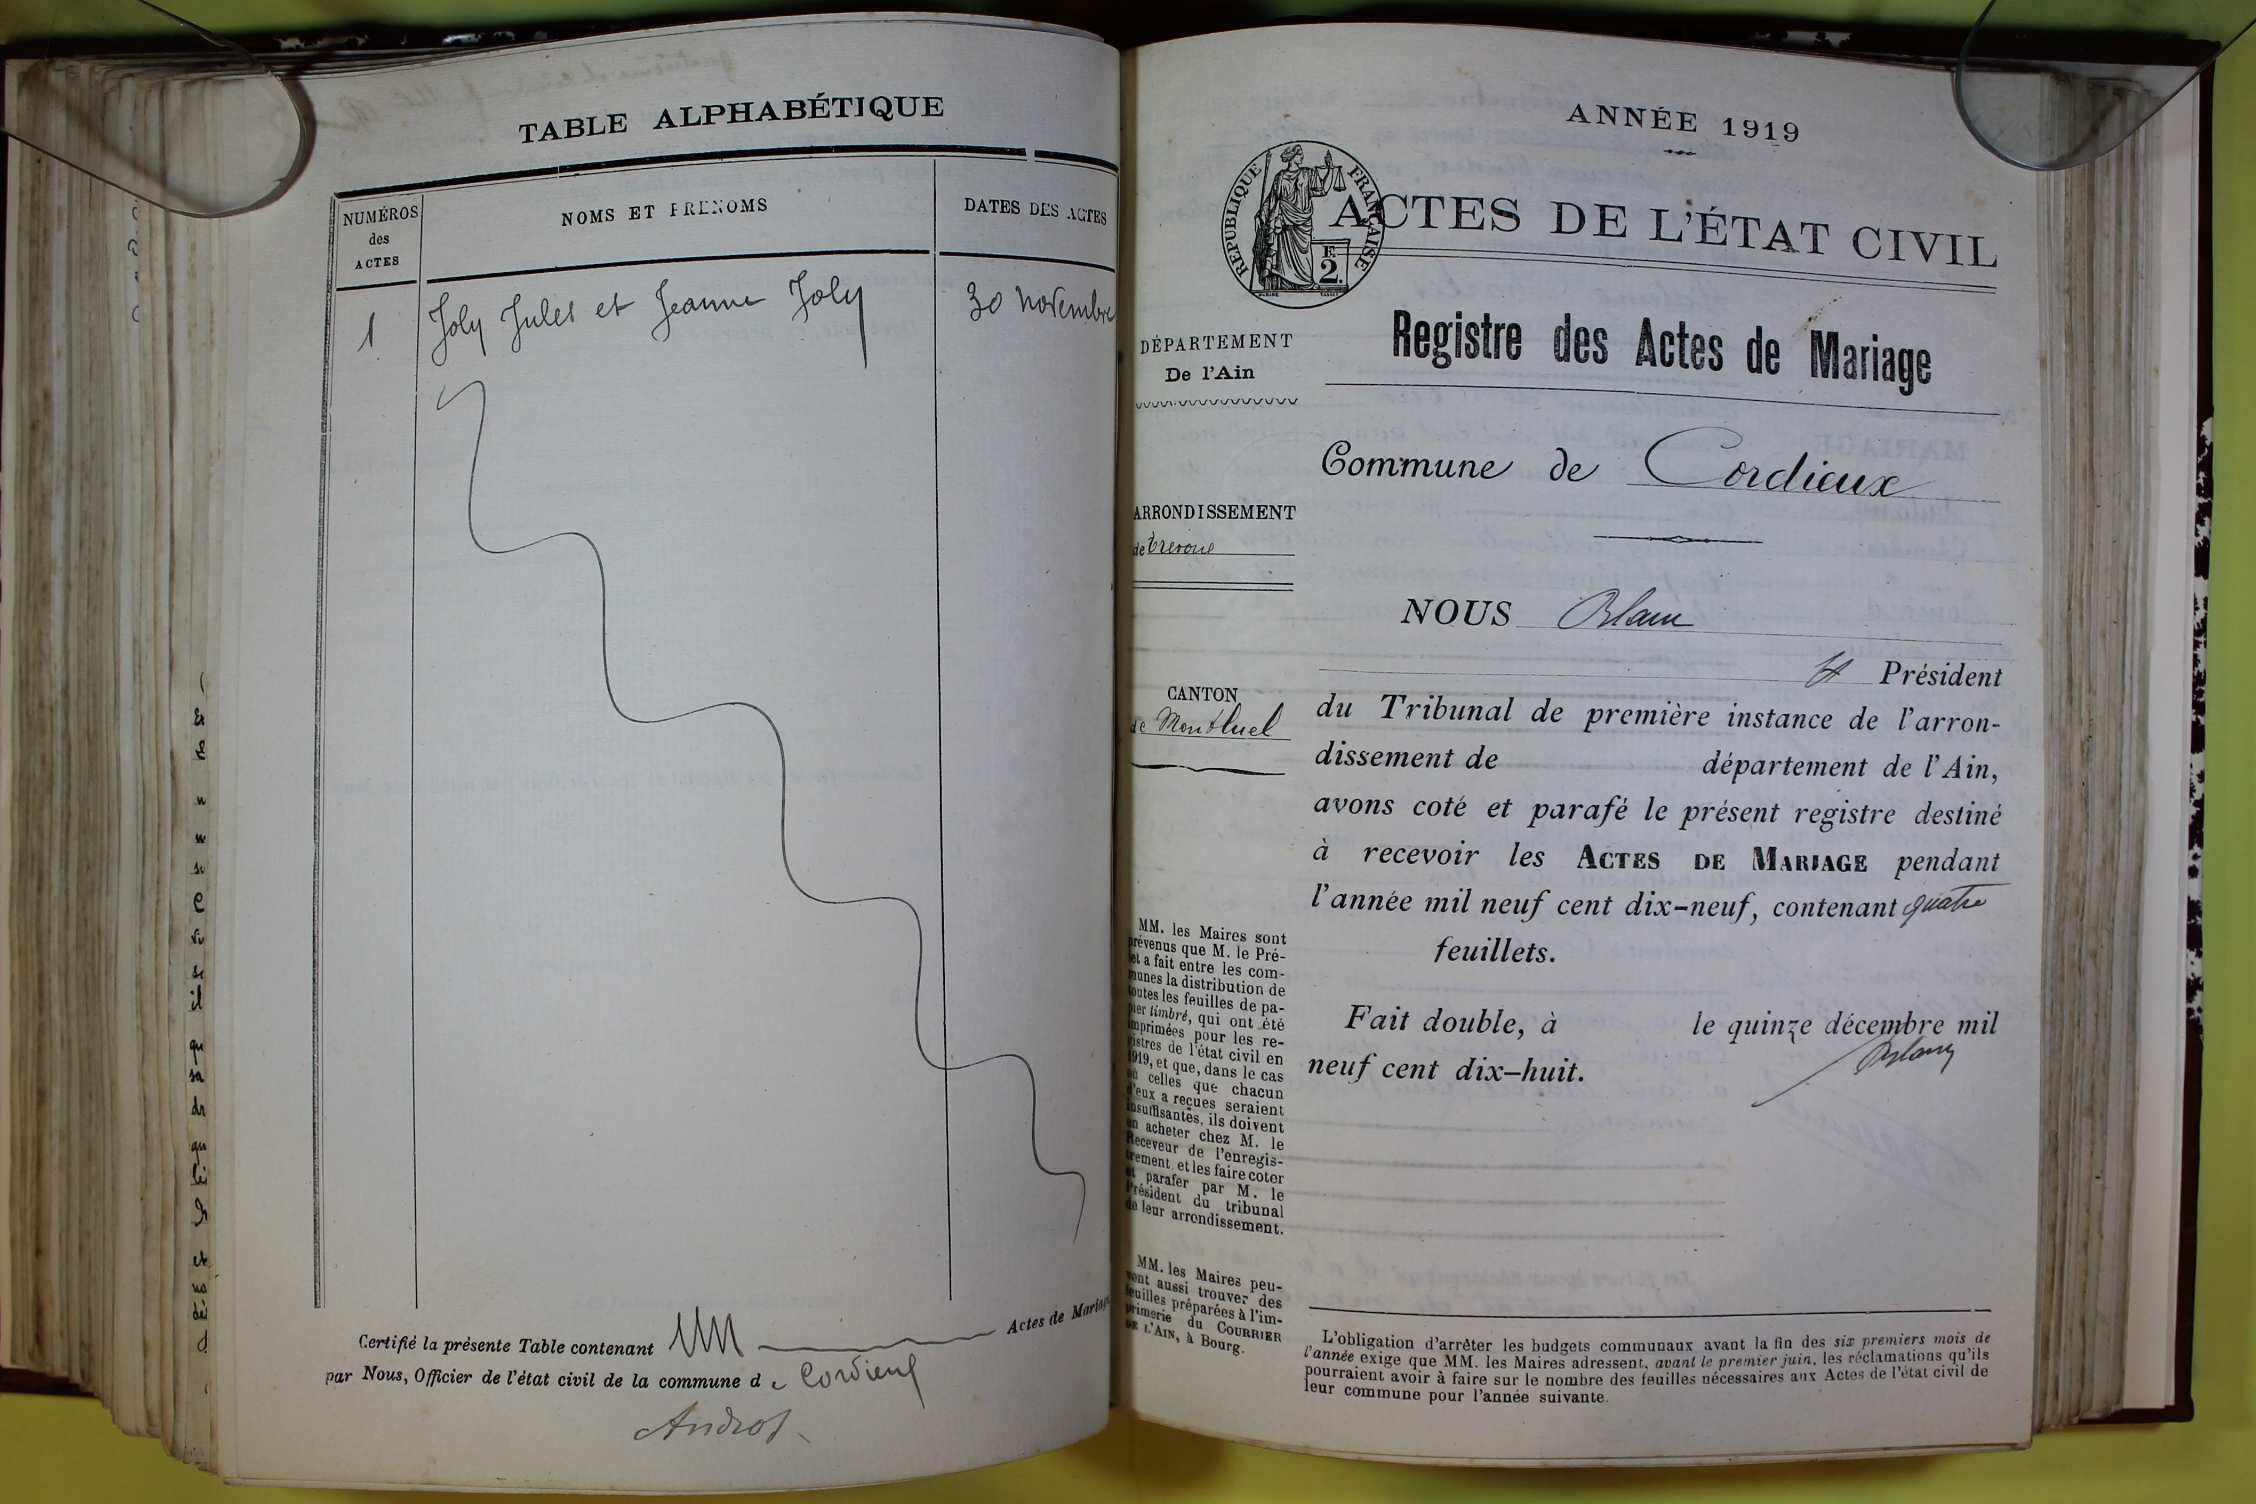 TABLE ALPHABÉTIQUE
NUMÉROS
des
ACTES
NOMS ET PRENOMS
DATES DES ACTES
1
Joly Jules et Jeanne Joly
30 novembre
Certifié la présente Table contenant un Actes de Mariage
par Nous, Officier de l'état civil de la commune de Cordieux
ANNÉE 1919
RÉPUBLIQUE FRANÇAISE
2
F.
ACTES DE L'ÉTAT CIVIL
Registre des Actes de Mariage
DÉPARTEMENT
De l'Ain
Commune de Cordieux
ARRONDISSEMENT
de Trevoux
NOUS
Président
CANTON
de Montluel
du Tribunal de première instance de l'arron-
dissement de département de l'Ain,
avons coté et parafé le présent registre destiné
à recevoir les ACTES DE MARIAGE pendant
l'année mil neuf cent dix-neuf, contenant quatre
feuillets.
Fait double, à le quinze décembre mil
neuf cent dix-huit.
MM. les Maires sont
prévenus que M. le Pré-
fet a fait entre les com-
munes la distribution de
toutes les feuilles de pa-
pier timbré, qui ont été
imprimées pour les re-
gistres de l'état civil en
1919, et que, dans le cas
où celles que chacun
d'eux a reçues seraient
insuffisantes, ils doivent
en acheter chez M. le
Receveur de l'enregis-
trement, et les faire coter
et parafer par M. le
Président du tribunal
de leur arrondissement.
MM. les Maires peu-
vent aussi trouver des
feuilles préparées à l'im-
primerie du COURRIER
DE L'AIN, à Bourg.
L'obligation d'arrêter les budgets communaux avant la fin des six premiers mois de
l'année exige que MM. les Maires adressent, avant le premier juin, les réclamations qu'ils
pourraient avoir à faire sur le nombre des feuilles nécessaires aux Actes de l'état civil de
leur commune pour l'année suivante.